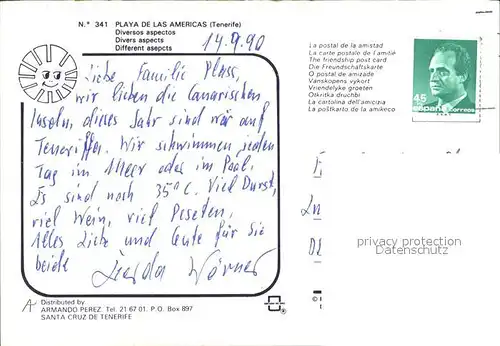 N.º 341 PLAYA DE LAS AMERICAS (Tenerife)
Diversos aspectos
Divers aspects
Different asepcts
14.9.90
Liebe Familie Plass,
wir lieben die Canarischen
Inseln, dieses Jahr sind wir auf
Teneriffa. Wir schwimmen jeden
Tag im Meer oder im Pool.
Es sind noch 35°C. Viel Durst,
viel Wein, viel Peseten.
Alles Liebe und Gute für Sie
beide
Distributed by
ARMANDO PEREZ Tel. 21 67 01. P.O. Box 897
SANTA CRUZ DE TENERIFE
La postal de la amistad
La carte postale de l'amitié
The friendship post card
Die Freundschaftskarte
O postal de amizade
Vanskapens vykort
Vriendelyke groeten
Otkritka druchbi
La cartolina dell'amicizia
La poŝtkarto de la amikeco
45
españa correos
privacy protection
Datenschutz